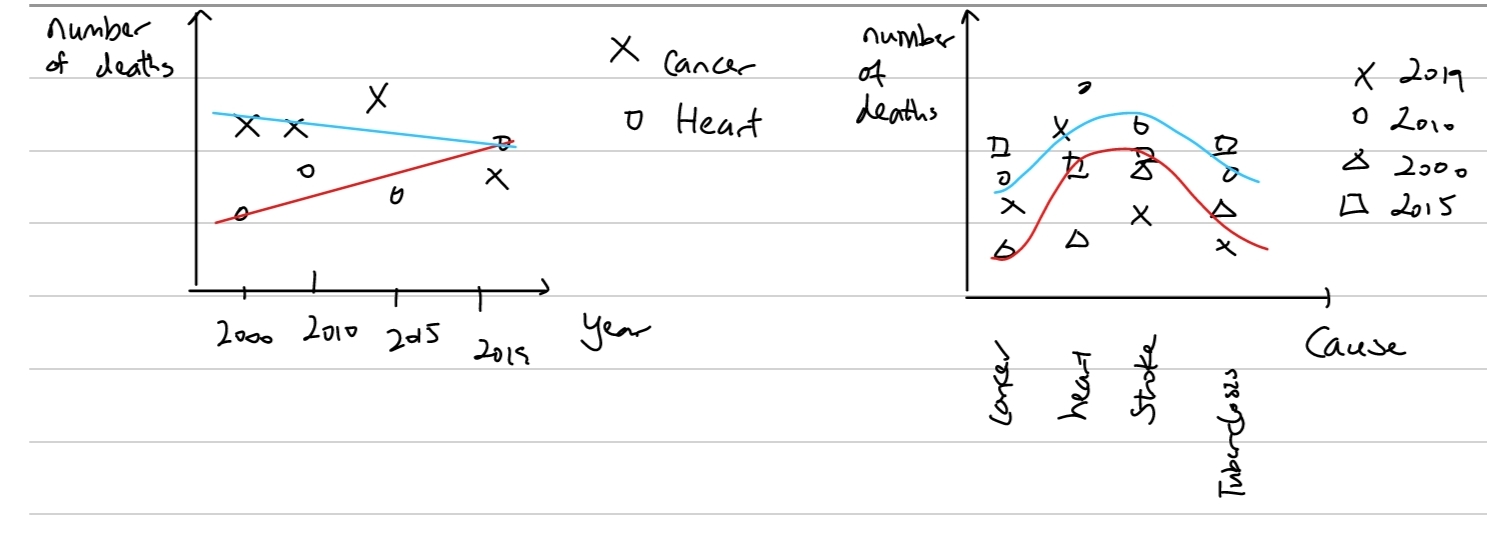 number
of deaths
X Cancer
o Heart
2000 2010 2015 2019
Year
number
of
deaths
X 2019
o 2010
△ 2000
□ 2015
Cancer
heart
Stroke
Tuberclosis
Cause